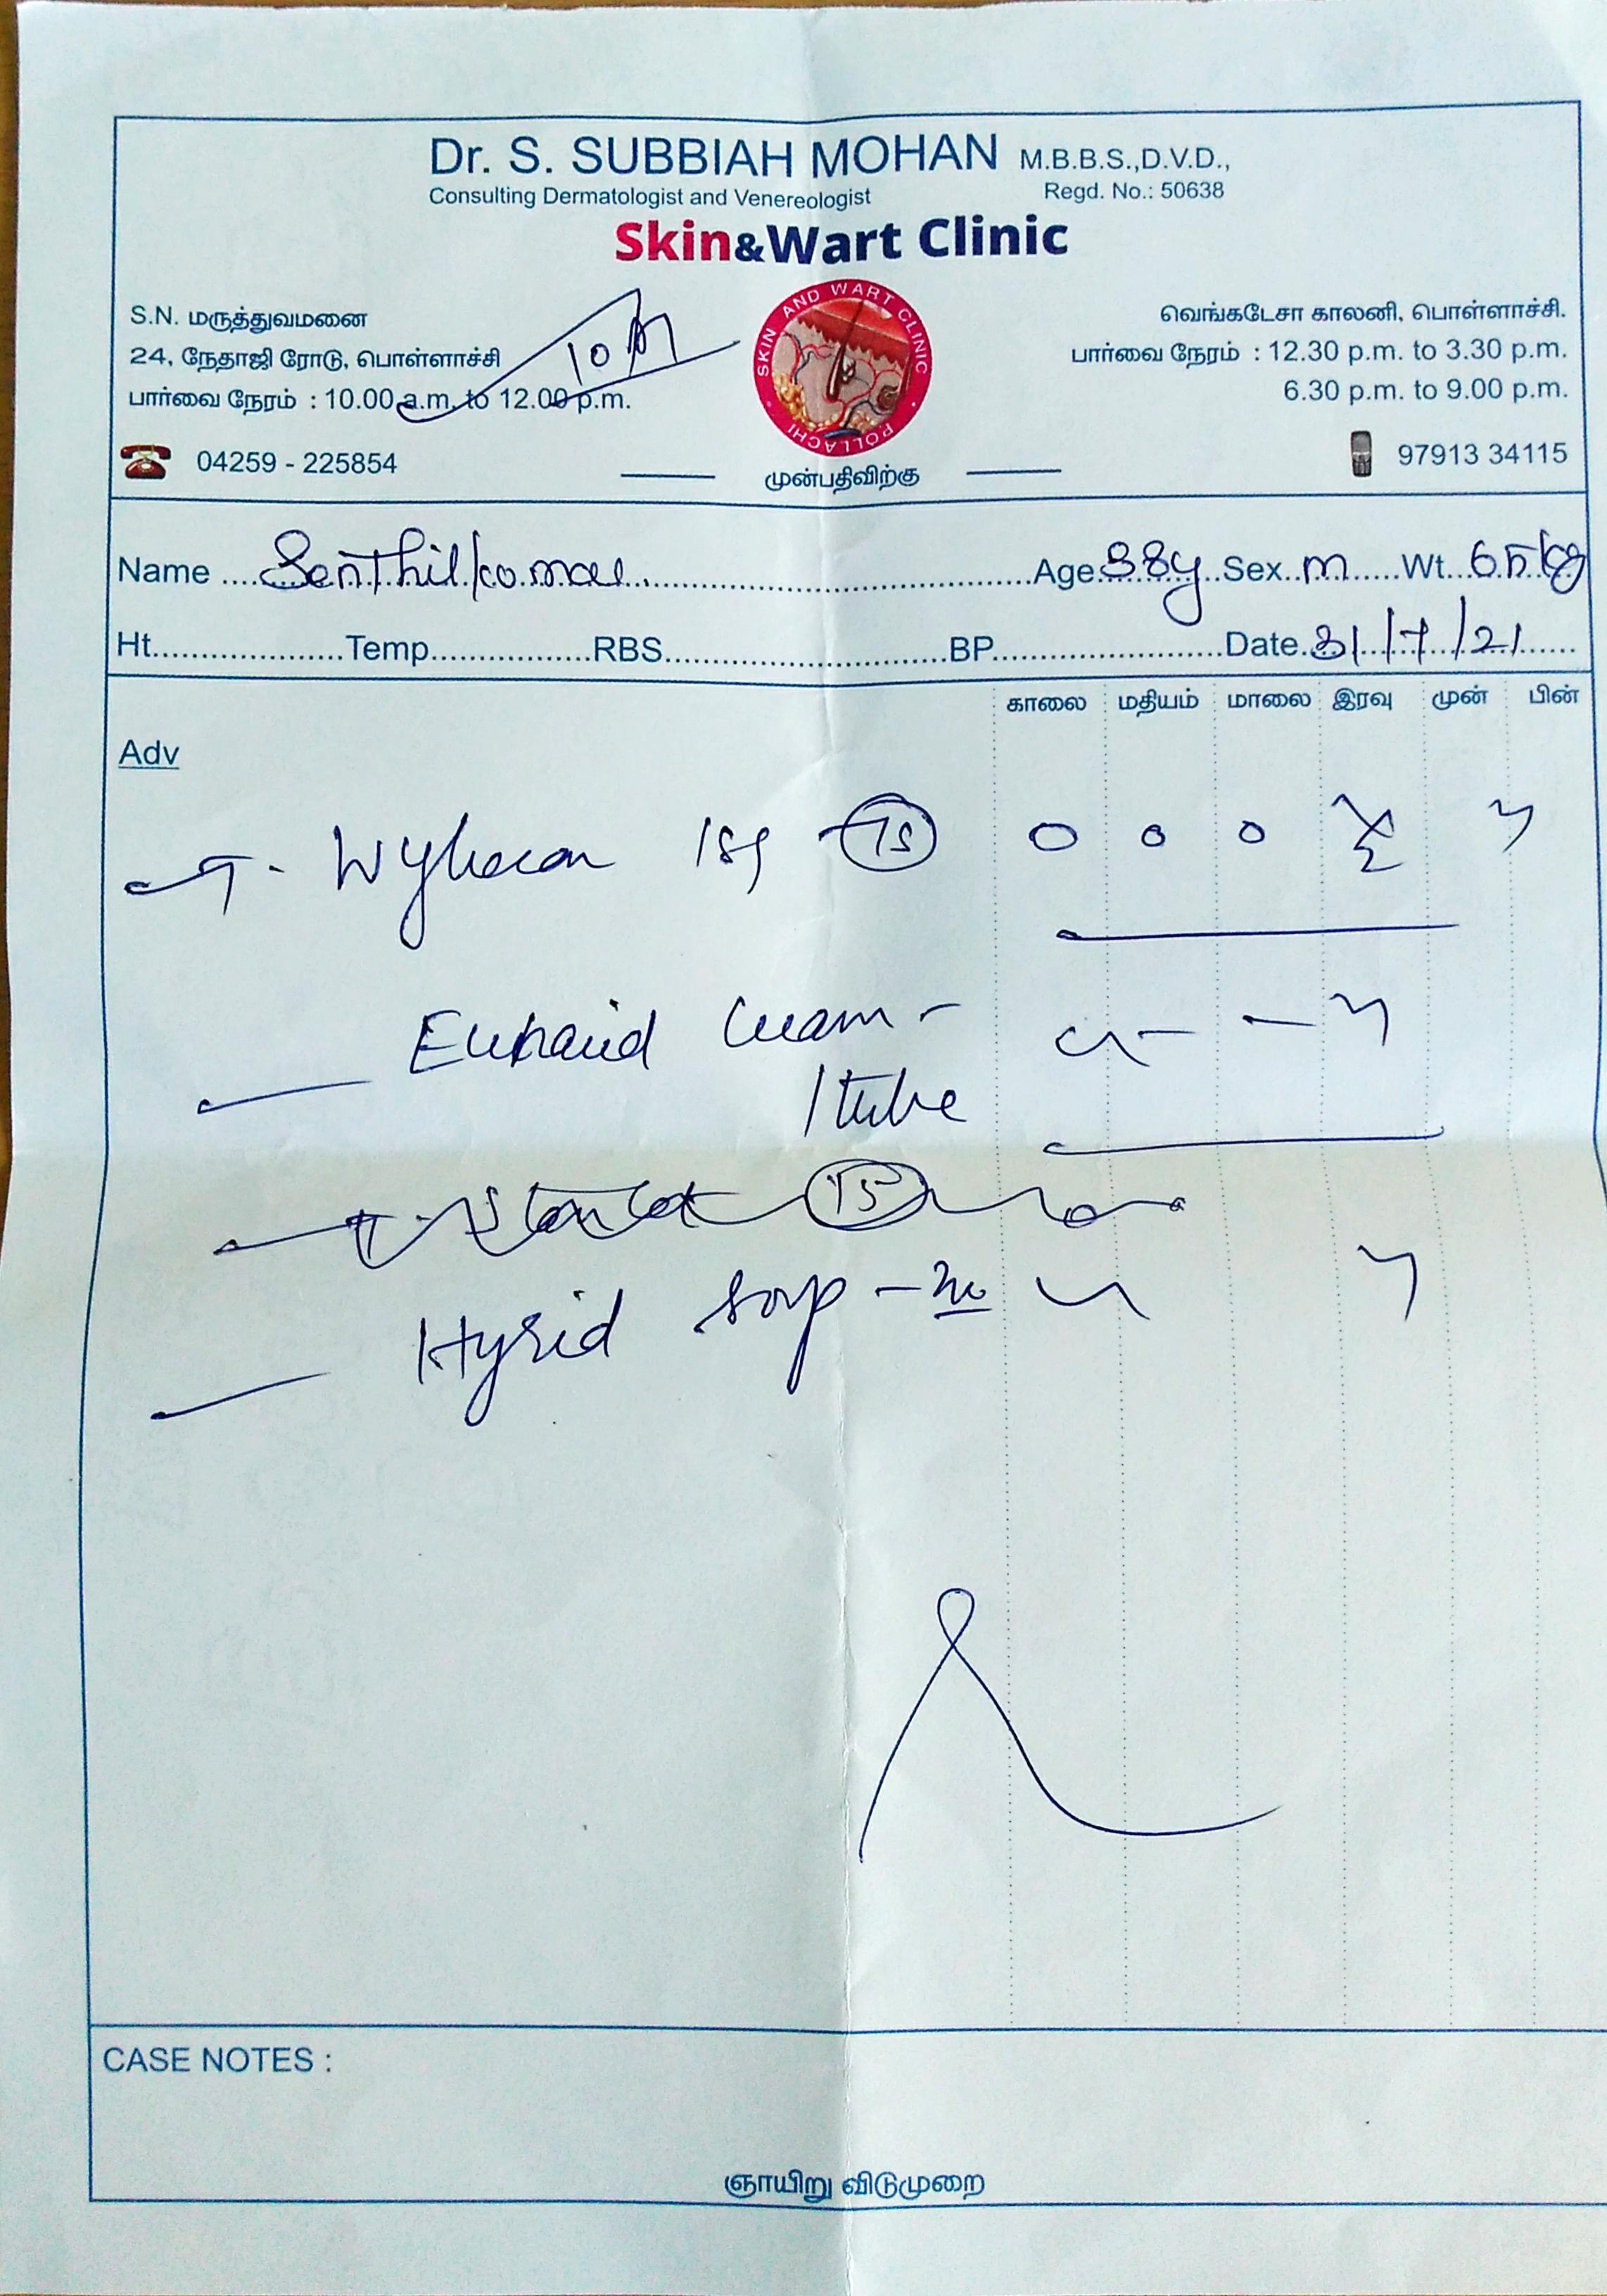 Dr. S. SUBBIAH MOHAN M.B.B.S.,D.V.D.,
Consulting Dermatologist and Venereologist Regd. No.: 50638
Skin&Wart Clinic
S.N. மருத்துவமனை
24, நேதாஜி ரோடு, பொள்ளாச்சி
பார்வை நேரம் : 10.00 a.m. to 12.00 p.m.
04259 - 225854
SKIN AND WART CLINIC
POLLACHI
முன்பதிவிற்கு
வெங்கடேசா காலனி, பொள்ளாச்சி.
பார்வை நேரம் : 12.30 p.m. to 3.30 p.m.
6.30 p.m. to 9.00 p.m.
97913 34115
Name Senthilkumar Age 38y Sex m Wt 65kg
Ht Temp RBS BP Date 31/7/21
காலை மதியம் மாலை இரவு முன் பின்
Adv
T. 15 0 0 0
Cream -
1 tube
15
Soap -
CASE NOTES :
ஞாயிறு விடுமுறை